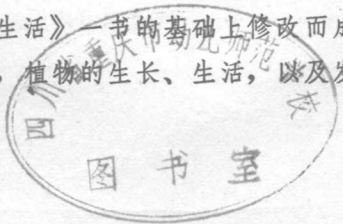 生活》一书的基础上修改而成
，植物的生长、生活，以及发
四川省重庆市幼儿师范学校
图书室